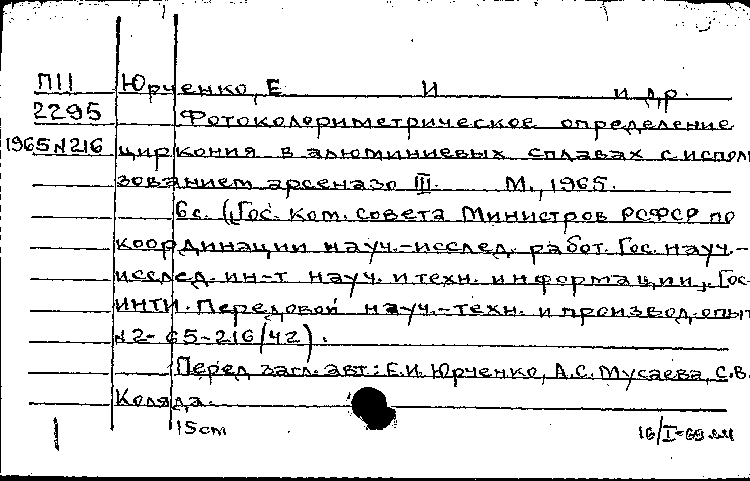 П11 Юрченко, Е И и др.
2295 Фотоколориметрическое определение
1965 N216 циркония в алюминиевых сплавах с исполь
зованием арсеназо III. М., 1965.
6 с. (Гос. ком. совета Министров РСФСР по
координации науч.-исслед. работ. Гос. науч.-
исслед. ин-т науч. и техн. информации, Гос-
ИНТИ. Передовой науч.-техн. и производ. опыт
N2-65-216/42).
Перед загл. авт.: Е.И. Юрченко, А.С. Мусаева, С.В.
Коляда.
1 15 см 16/I-69